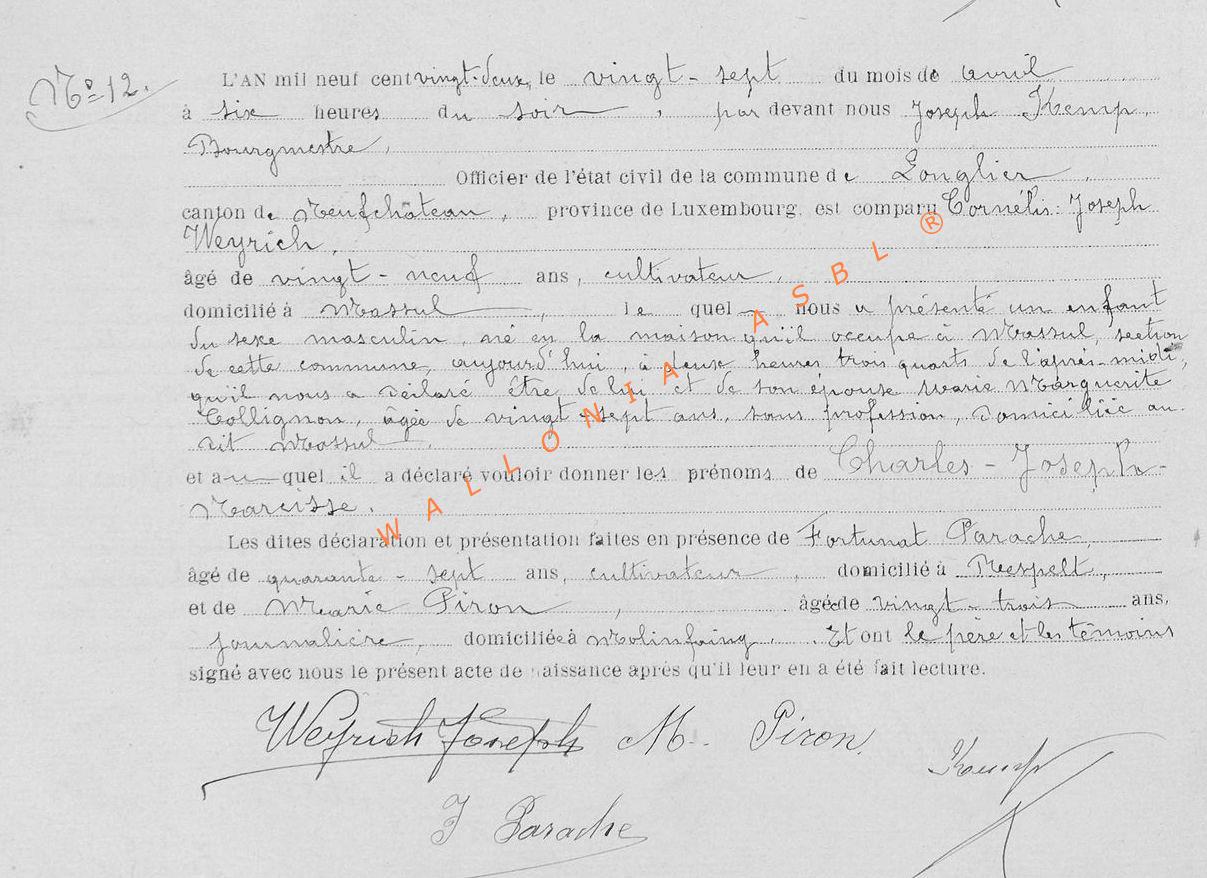 Nº 12.
L'AN mil neuf cent vingt-deux, le vingt-sept du mois de avril
à six heures du soir, par devant nous Joseph Kemp,
Bourgmestre,
Officier de l'état civil de la commune de Longlier,
canton de Neufchâteau, province de Luxembourg, est comparu Cornélis-Joseph
Weyrich,
âgé de vingt-neuf ans, cultivateur
domicilié à Massul, le quel nous a présenté un enfant
du sexe masculin, né en la maison qu'il occupe à Massul, section
de cette commune, aujourd'hui, à deux heures trois quarts de l'après-midi,
qu'il nous a déclaré être de lui et de son épouse Marie Marguerite
Collignon, âgée de vingt-sept ans, sans profession, domiciliée au
dit Massul,
et au quel il a déclaré vouloir donner les prénoms de Charles-Joseph-
Narcisse.
Les dites déclaration et présentation faites en présence de Fortunat Parache,
âgé de quarante-sept ans, cultivateur, domicilié à Respelt,
et de Marie Piron, âgée de vingt-trois ans,
journalière, domiciliée à Molinfaing. Et ont le père et les témoins
signé avec nous le présent acte de naissance après qu'il leur en a été fait lecture.
Weyrich Joseph M. Piron
Kemp
F Parache
WALLONIA ASBL ®